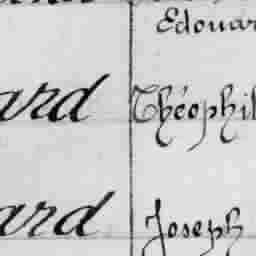 Edouar
ard Théophil
ard Joseph